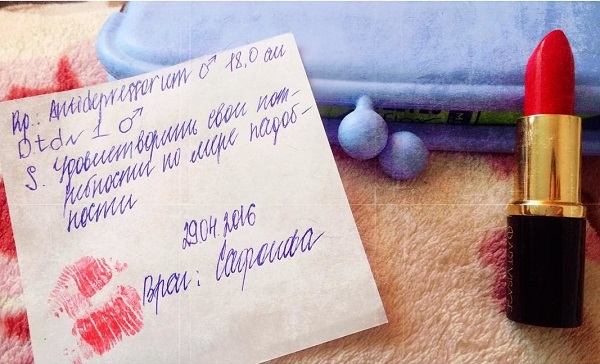 Rp.: Antidepressorum ♂ 18,0 см
D t d N 1 ♂
S. Удовлетворить свои пот-
ребности по мере надоб-
ности
29.04.2016
Врач: Сафонова